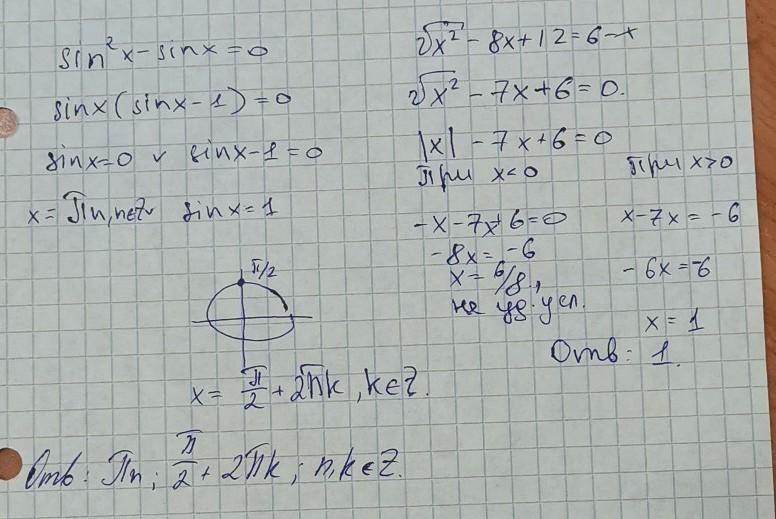 sin²x - sinx = 0
sinx(sinx - 1) = 0
sinx=0 v sinx-1=0
x = πn, n∈Z sinx = 1
π/2
x = π/2 + 2πk, k∈Z.
Отв: πn; π/2 + 2πk; n,k∈Z.
√x² - 8x + 12 = 6 - x
√x² - 7x + 6 = 0.
|x| - 7x + 6 = 0
При x<0 При x>0
-x - 7x + 6 = 0 x - 7x = -6
-8x = -6 -6x = -6
x = 6/8,
не уд. усл.
x = 1
Отв: 1.